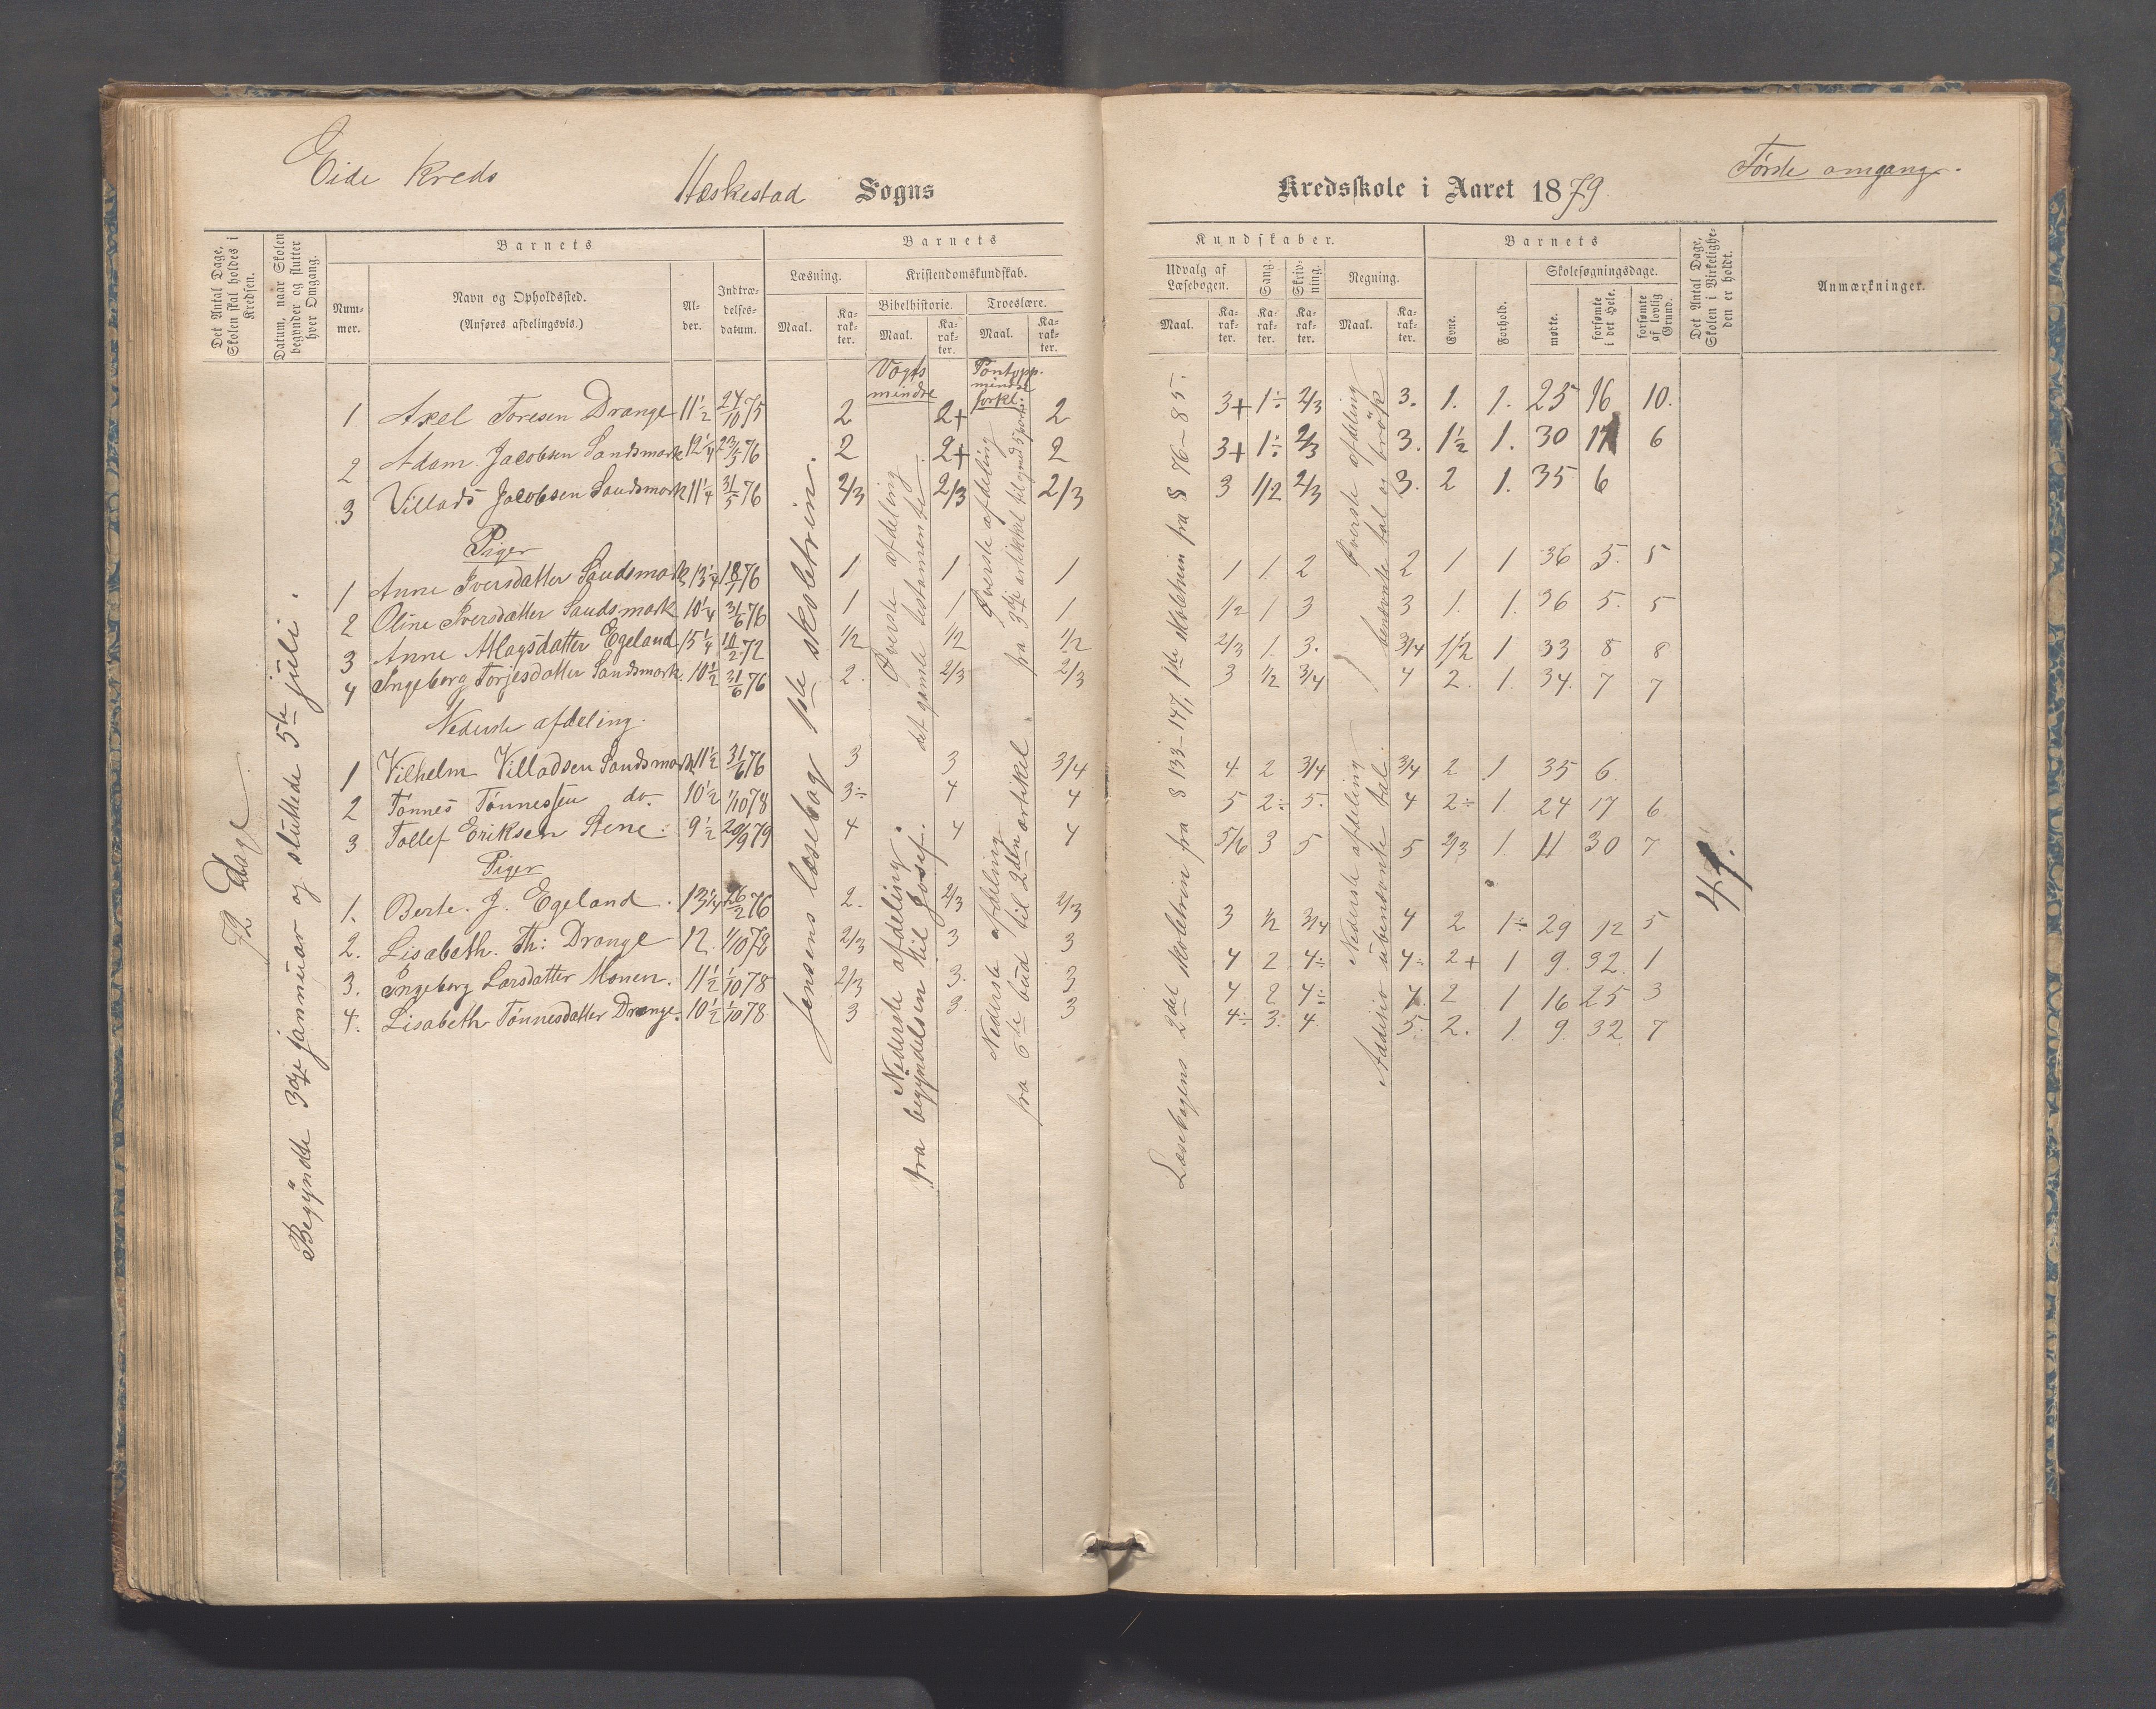 Eide Kreds
Heskestad Sogns
Kredsskole i Aaret 1879
Første omgang.
Det Antal Dage, Skolen skal holdes i Kredsen.
Datum, naar Skolen begynder og slutter hver Omgang.
Barnets
Num-
mer.
Navn og Opholdssted.
(Anføres afdelingsvis.)
Al-
der.
Indtræ-
delses-
datum.
Barnets
Læsning.
Kristendomskundskab.
Bibelhistorie.
Troeslære.
Maal.
Ka-
rak-
ter.
Maal.
Ka-
rak-
ter.
Maal.
Ka-
rak-
ter.
Kundskaber.
Udvalg af
Læsebogen.
Sang.
Skriv-
ning.
Regning.
Maal.
Ka-
rak-
ter.
Ka-
rak-
ter.
Ka-
rak-
ter.
Maal.
Ka-
rak-
ter.
Barnets
Evne.
Forhold.
Skolesøgningsdage.
mødte.
forsømte
i det Hele.
forsømte
af lovlig
Grund.
Det Antal Dage,
Skolen i Virkelighe-
den er holdt.
Anmærkninger.
72 Dage
Begyndte 3dje januar og sluttede 5te juli.
Jensens læsebog 1ste skoletrin.
Vogts
mindre
Øverste afdeling
det gamle testamente
Nederste afdeling.
fra begyndelsen til Josef.
Pontopp.
mindre
forkl.
Øverste afdeling
Nederste afdeling
fra 6te bud til 2den artikel
Læsebogens 2det skoletrin fra § 133-147, 1ste skoletrin fra § 76-85.
Øverste afdeling
benævnte tal og brøk
Nederste afdeling
Addisio ubenævnte tal.
1 Axel Toresen Drange 11½ 24/10 75 2 2+ 2 3+ 1÷ 2/3 3. 1. 1. 25 16 10.
2 Adam Jacobsen Sandsmark 12¼ 23/5 76 2 2+ 2 3+ 1÷ 2/3 3. 1½ 1. 30 11 6
3 Villads Jacobsen Sandsmark 11¼ 31/5 76 2/3 2/3 2/3 3 1/2 2/3 3. 2 1. 35 6
Piger
1 Anne Iversdatter Sandsmark 13¼ 18/1 76 1 1 1 1 1 2 2 1 1 36 5. 5
2 Oline Iversdatter Sandsmark 10¼ 31/6 76 1 1 1 1/2 1 3 3 1. 1. 36 5. 5
3 Anne Atlagsdatter Egeland 15¼ 10/2 72 1/2 1/2 1/2 2/3 1. 3. 3/4 1½ 1 33 8 8
4 Ingeborg Torjesdatter Sandsmark. 10½ 31/6 76 2. 2/3 2/3 3 1/2 3/4 4 2. 1. 34. 7 7
Nederste afdeling.
1 Vilhelm Villadsen Sandsmark 11½ 31/6 76 3 3 3/4 4 2 3/4 3/4 2 1 35 6.
2 Tønnes Tønnessen do. 10½ 1/10 78 3÷ 4 4 5 2÷ 5. 4 2÷ 1. 24 17 6
3 Tollef Eriksen Stene. 9½ 20/9 79 4 4 4 5/6 3 5 5 2/3 1 11 30 7
Piger
1. Berte. J. Egeland. 13¼ 26/2 76 2. 2/3 2/3 3 1/2 3/4 4 2 1÷ 29 12 5
2. Lisabeth. Th: Drange 12. 1/10 78 2/3 3 3 4 2 4÷ 4÷ 2+ 1 9. 32. 1
3. Ingeborg Larsdatter Monen. 11½ 1/10 78 2/3 3. 3 4 2 4÷ 4. 2 1 16 25 3
4. Lisabeth Tønnesdatter Drange. 10½ 1/10 78 3 3. 3 4÷ 3. 4. 5. 2. 1. 9. 32 7
41.